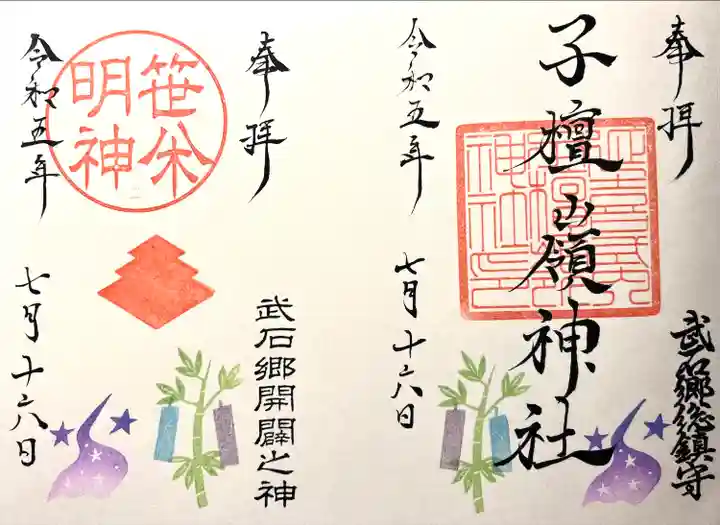 奉拝
武石郷総鎮守
子檀嶺神社
令和五年
七月十六日
奉拝
武石郷開闢之神
笹焼
明神
令和五年
七月十六日